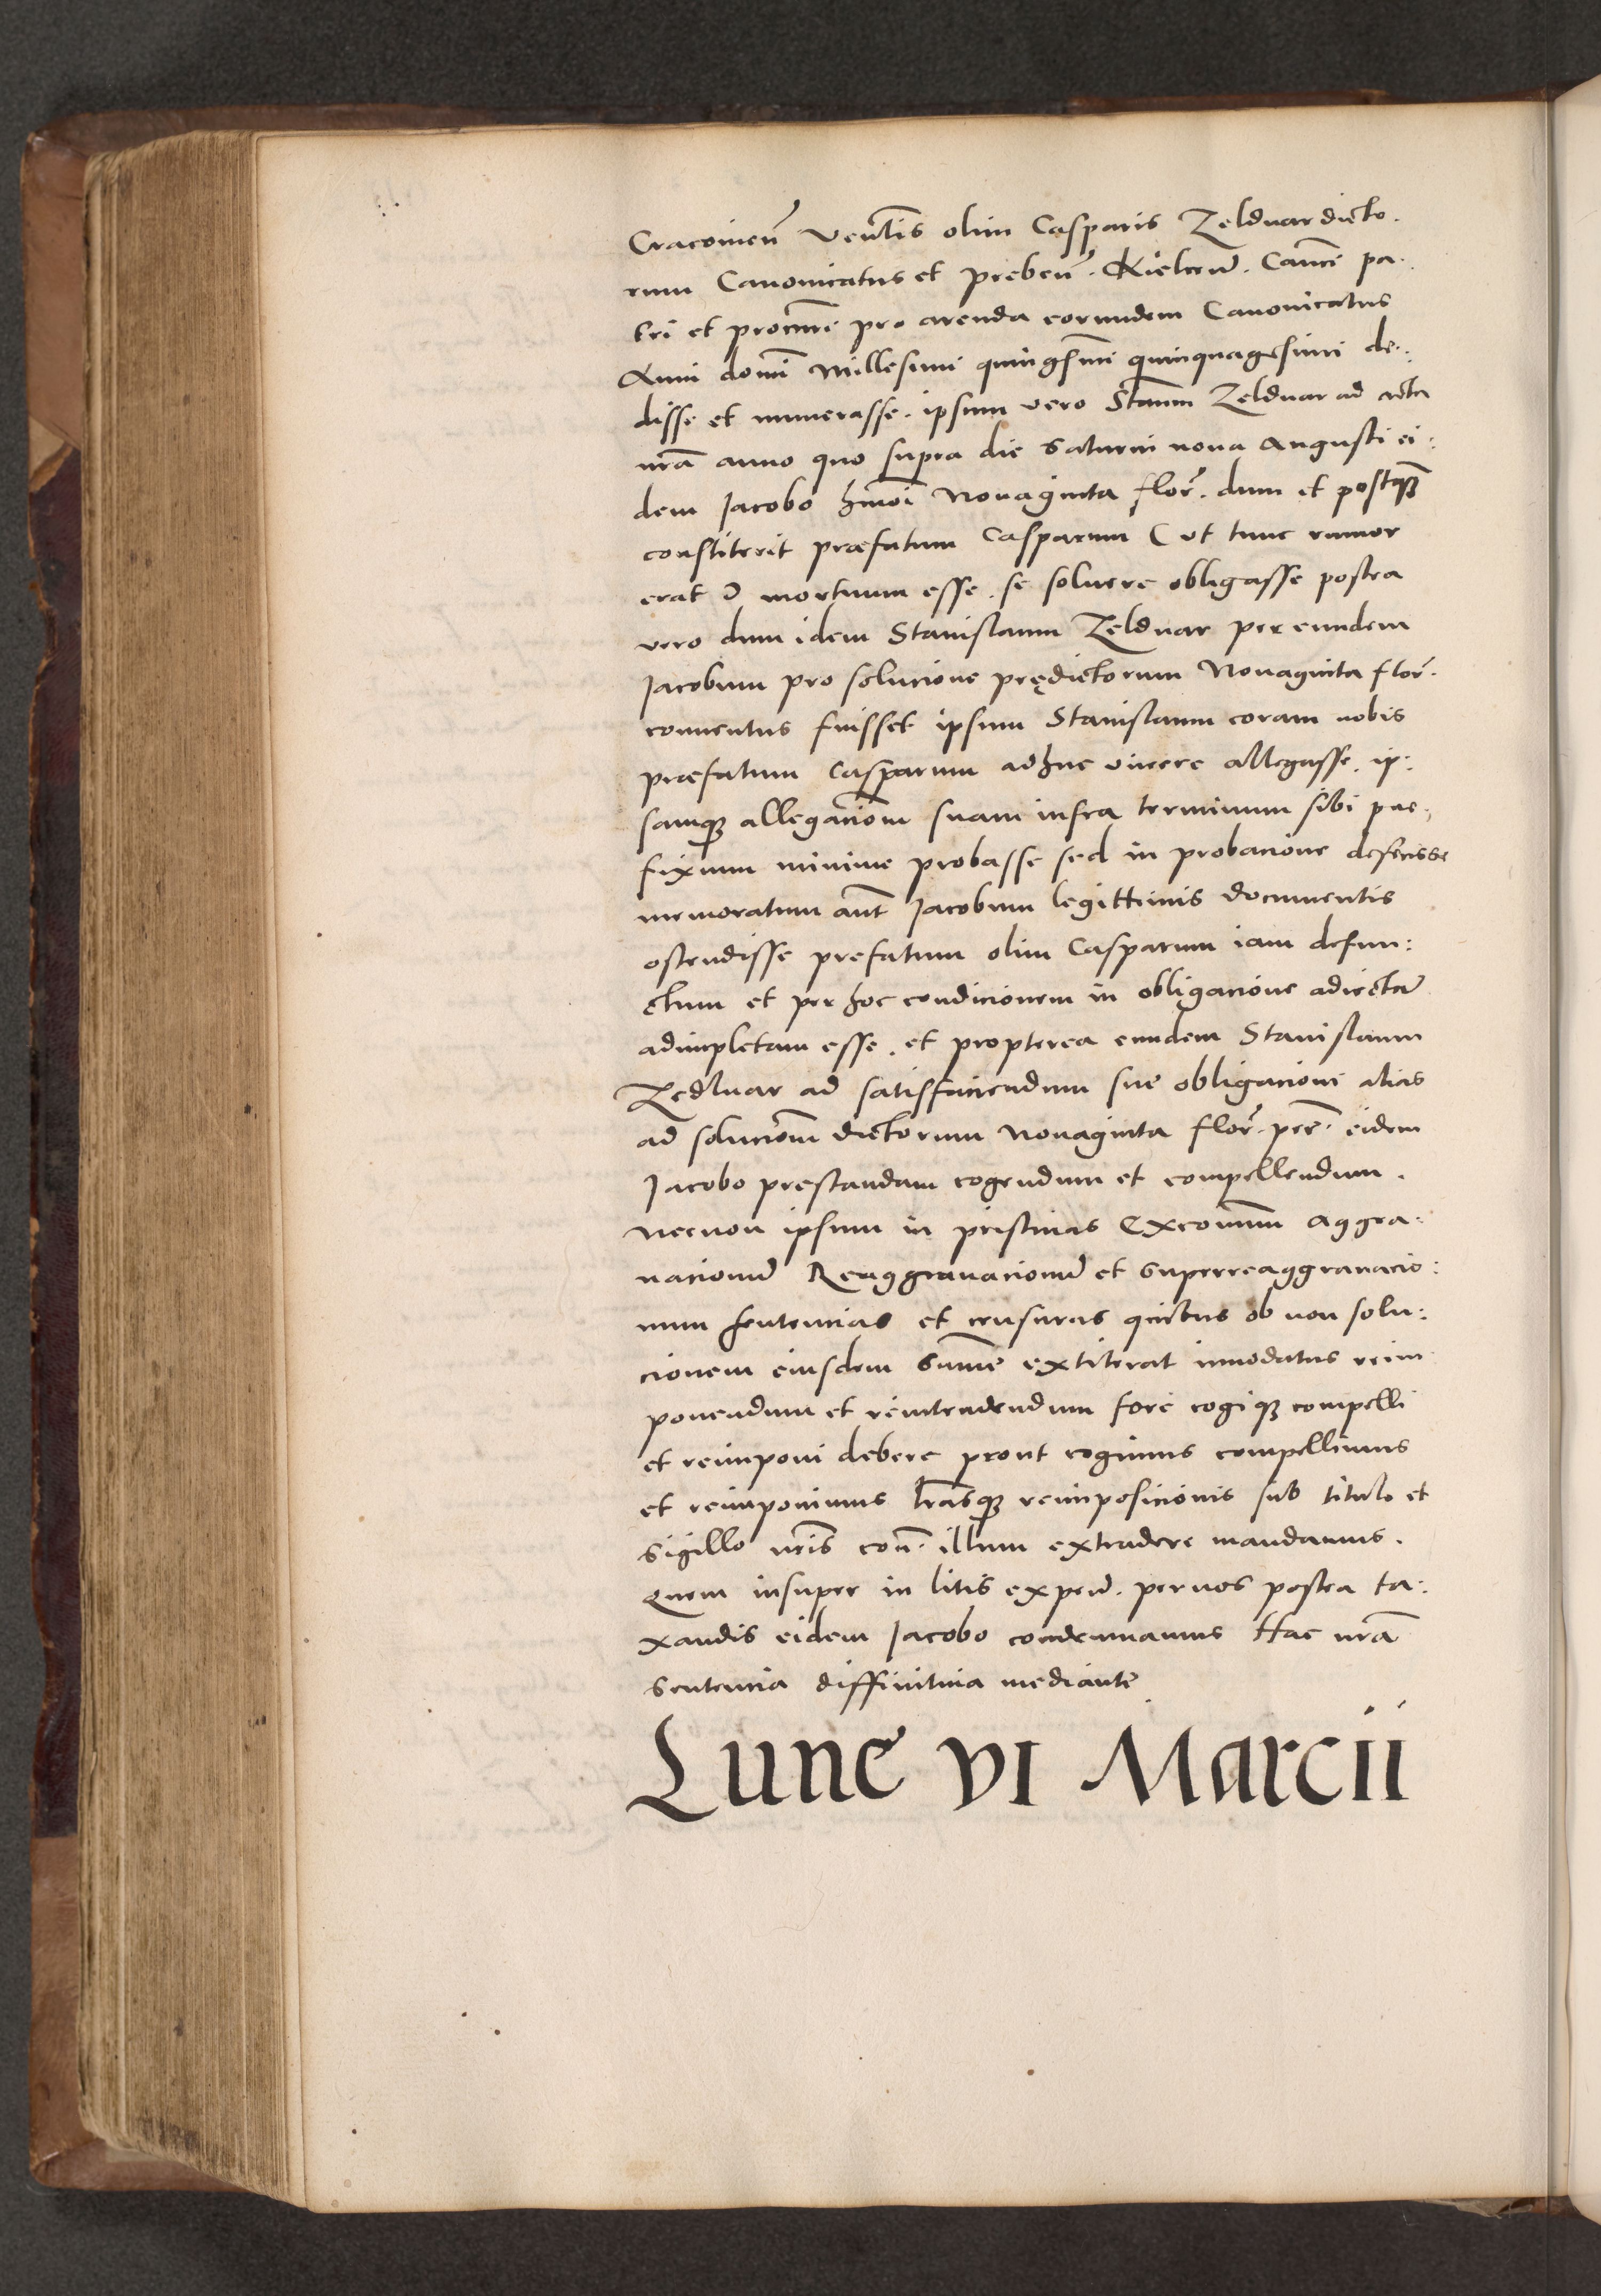 Cracovien̄ Ven̄tis olim Casparis Zelduar dicto.
rum Canonicatus et preben̄. Kielcen̄. Canc̄i pa.
tri et procur̄i pro arenda eorundem Canonicatus
Anni domī Millesimi quingēsmi quinquagesimi de:
disse et numerasse. ipsum vero Stanm̄ Zelduar ad acta
nrā anno quo supra die Saturni nona Augusti ei:
dem Jacobo hmōi Nonaginta flor̄. dum et postq̄ꝫ
constiterit præfatum Casparum ( ut tunc rumor
erat ) mortuum esse. se soluere obligasse postea
vero dum idem Stanislaum Zelduar per eundem
Jacobum pro solucione prędictorum Nonaginta flor̄.
conuentus fuisset ipsum Stanislaum coram nobis
præfatum Casparum adhuc viuere allegasse. ip:
samqꝫ allegaciōm suam infra terminum sibi præ:
fixum minime probasse sed in probacione defecisse
memoratum aut̄ Jacobum legittimis documentis
ostendisse prefatum olim Casparum iam defun:
ctum et per hoc condicionem in obligacione adiectā
adimpletam esse. et propterea eundem Stanislaum
Zedluar ad satisfaciendum sue obligacioni alias
ad soluciōm dictorum Nonaginta flor̄. per̄. eidem
Jacobo prestandam cogendum et compellendum.
necnon ipsum in pristinas Excomm̄ Aggra:
nacionū Reaggrauacionū et superreaggrauacio:
num sentencias et censuras quibus ob non solu:
cionem eiusdem Sum̄e extiterat innodatus reim
ponendum et reintrudendum fore cogiqꝫ compelli
et reimponi debere prout cogimus compellimus
et reimponimus lr̄asqꝫ reimposicionis sub titulo et
sigillo nr̄is con̄. illum extradere mandamus.
Quem insuper in litis expen̄. per nos postea ta:
xandis eidem Jacobo condemnamus Hac nrā
sentencia diffinitiua mediante
Lune VI Marcii